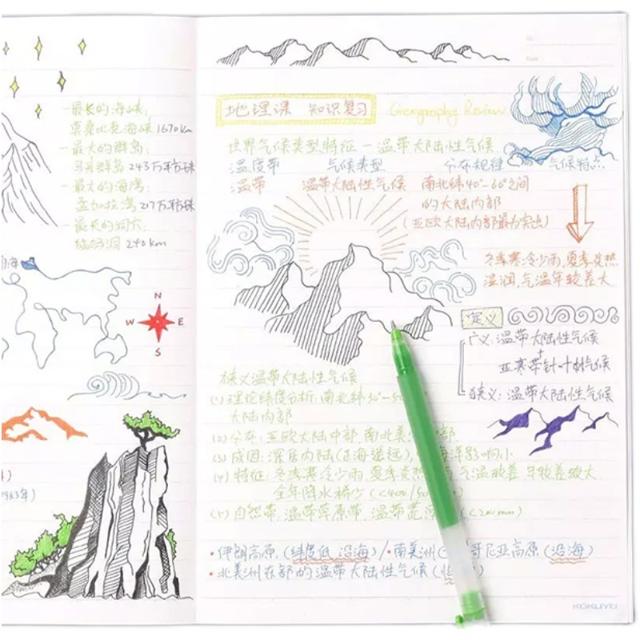 一最长的海峡:
莫桑比克海峡1670km
一最大的群岛:
马来群岛243万平方km
一最大的海湾:
孟加拉湾217万平方km
一最长的洞穴:
240km
N
W E
S
地理课 知识复习 Geography Review
世界气候类型特征一温带大陆性气候
温度带 气候类型 分布规律 气候特点
温带 温带大陆性气候 南北纬40°-60°之间
的大陆内部
(亚欧大陆内部最为突出)
冬季寒冷少雨,夏季炎热
湿润,气温年较差大
定义
广义:温带大陆性气候
+
亚寒带针叶林气候
狭义:温带大陆性气候
狭义温带大陆性气候
(1)理论纬度分析:南北纬30°-5
大陆内部
(2)分布:亚欧大陆中部,南北美 部
(3)成因:深居内陆(距海遥远), 海洋影响小
(4)特征:冬季寒冷少雨,夏季炎热 气温较差 年较差大
全年降水稀少
(5)自然带:温带草原带,温带荒
•伊朗高原(纬度低 沿海)/•南美洲 哥尼亚高原(沿海)
•北美洲东部的温带大陆性气候(
KOKUYO